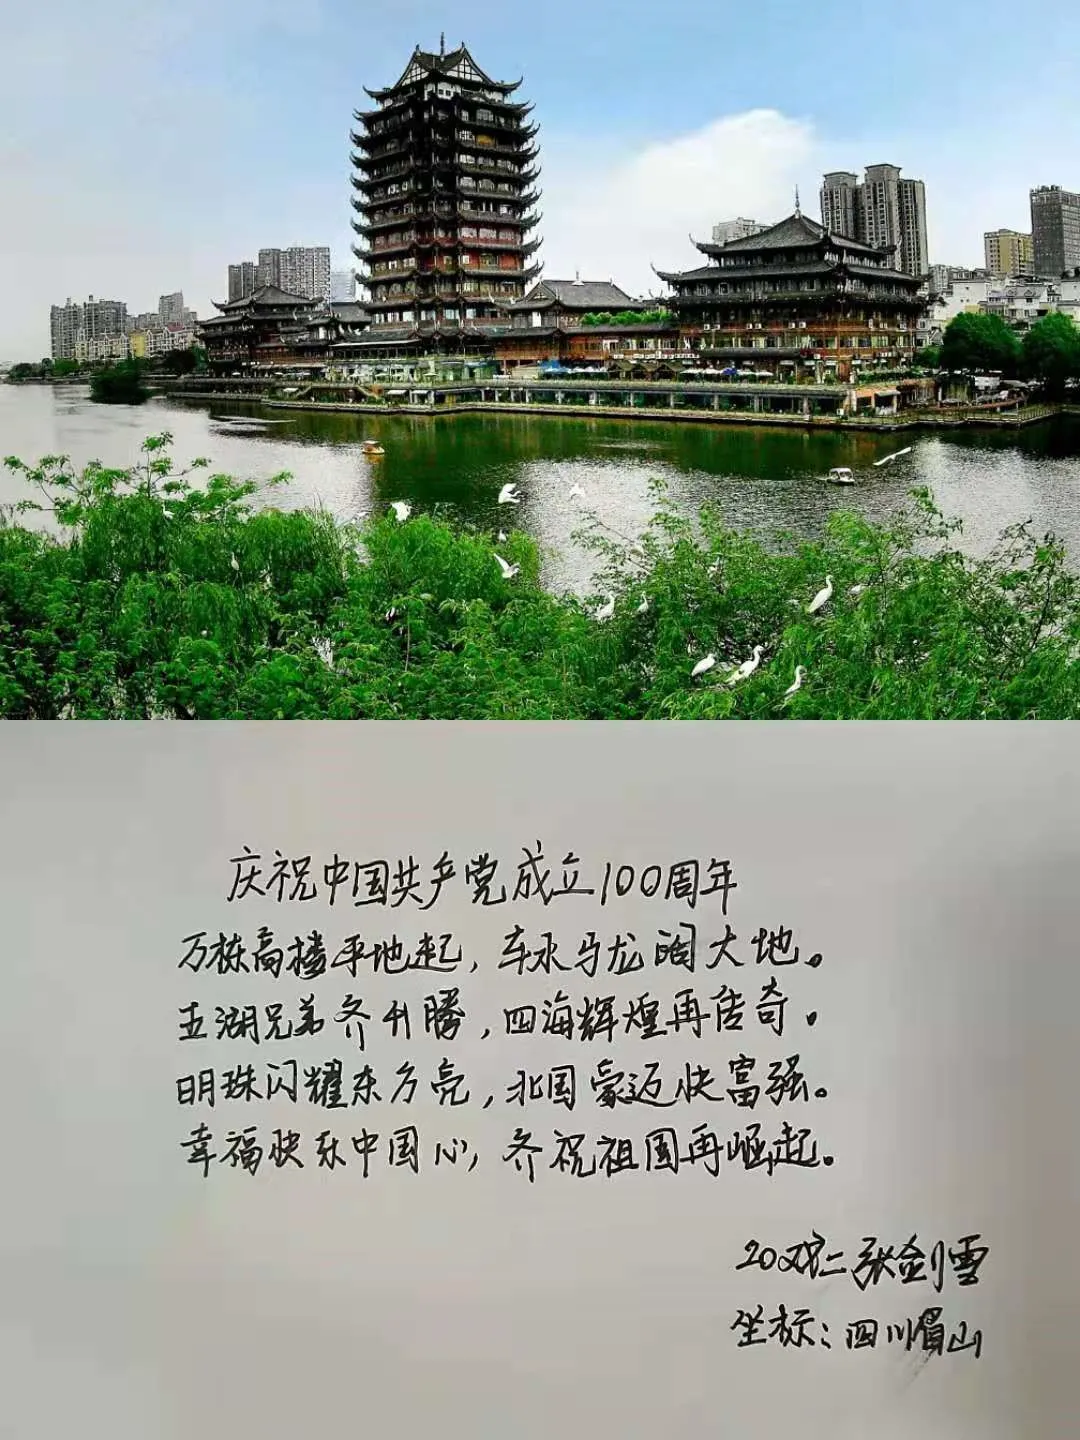 庆祝中国共产党成立100周年
万栋高楼平地起，车水马龙阔大地。
五湖兄弟齐升腾，四海辉煌再传奇。
明珠闪耀东方亮，北国豪迈快富强。
幸福快乐中国心，齐祝祖国再崛起。
20戏二张剑雪
坐标：四川眉山